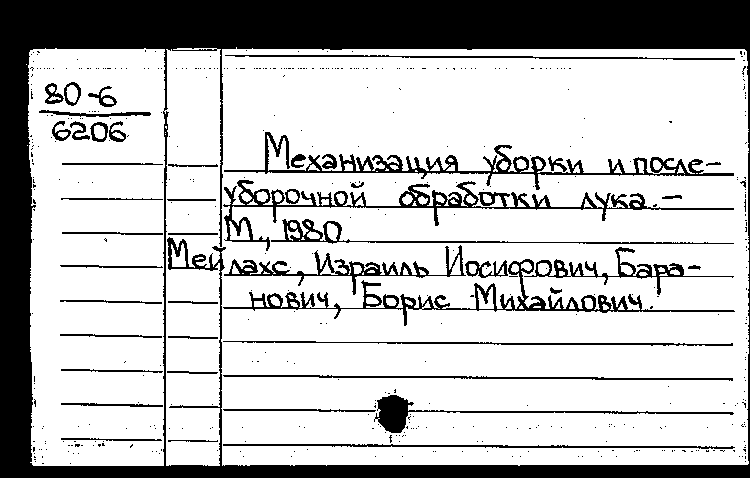 80-6
6206
Механизация уборки и после-
уборочной обработки лука.-
М., 1980.
Мейлахс, Израиль Иосифович, Бара-
нович, Борис Михайлович.